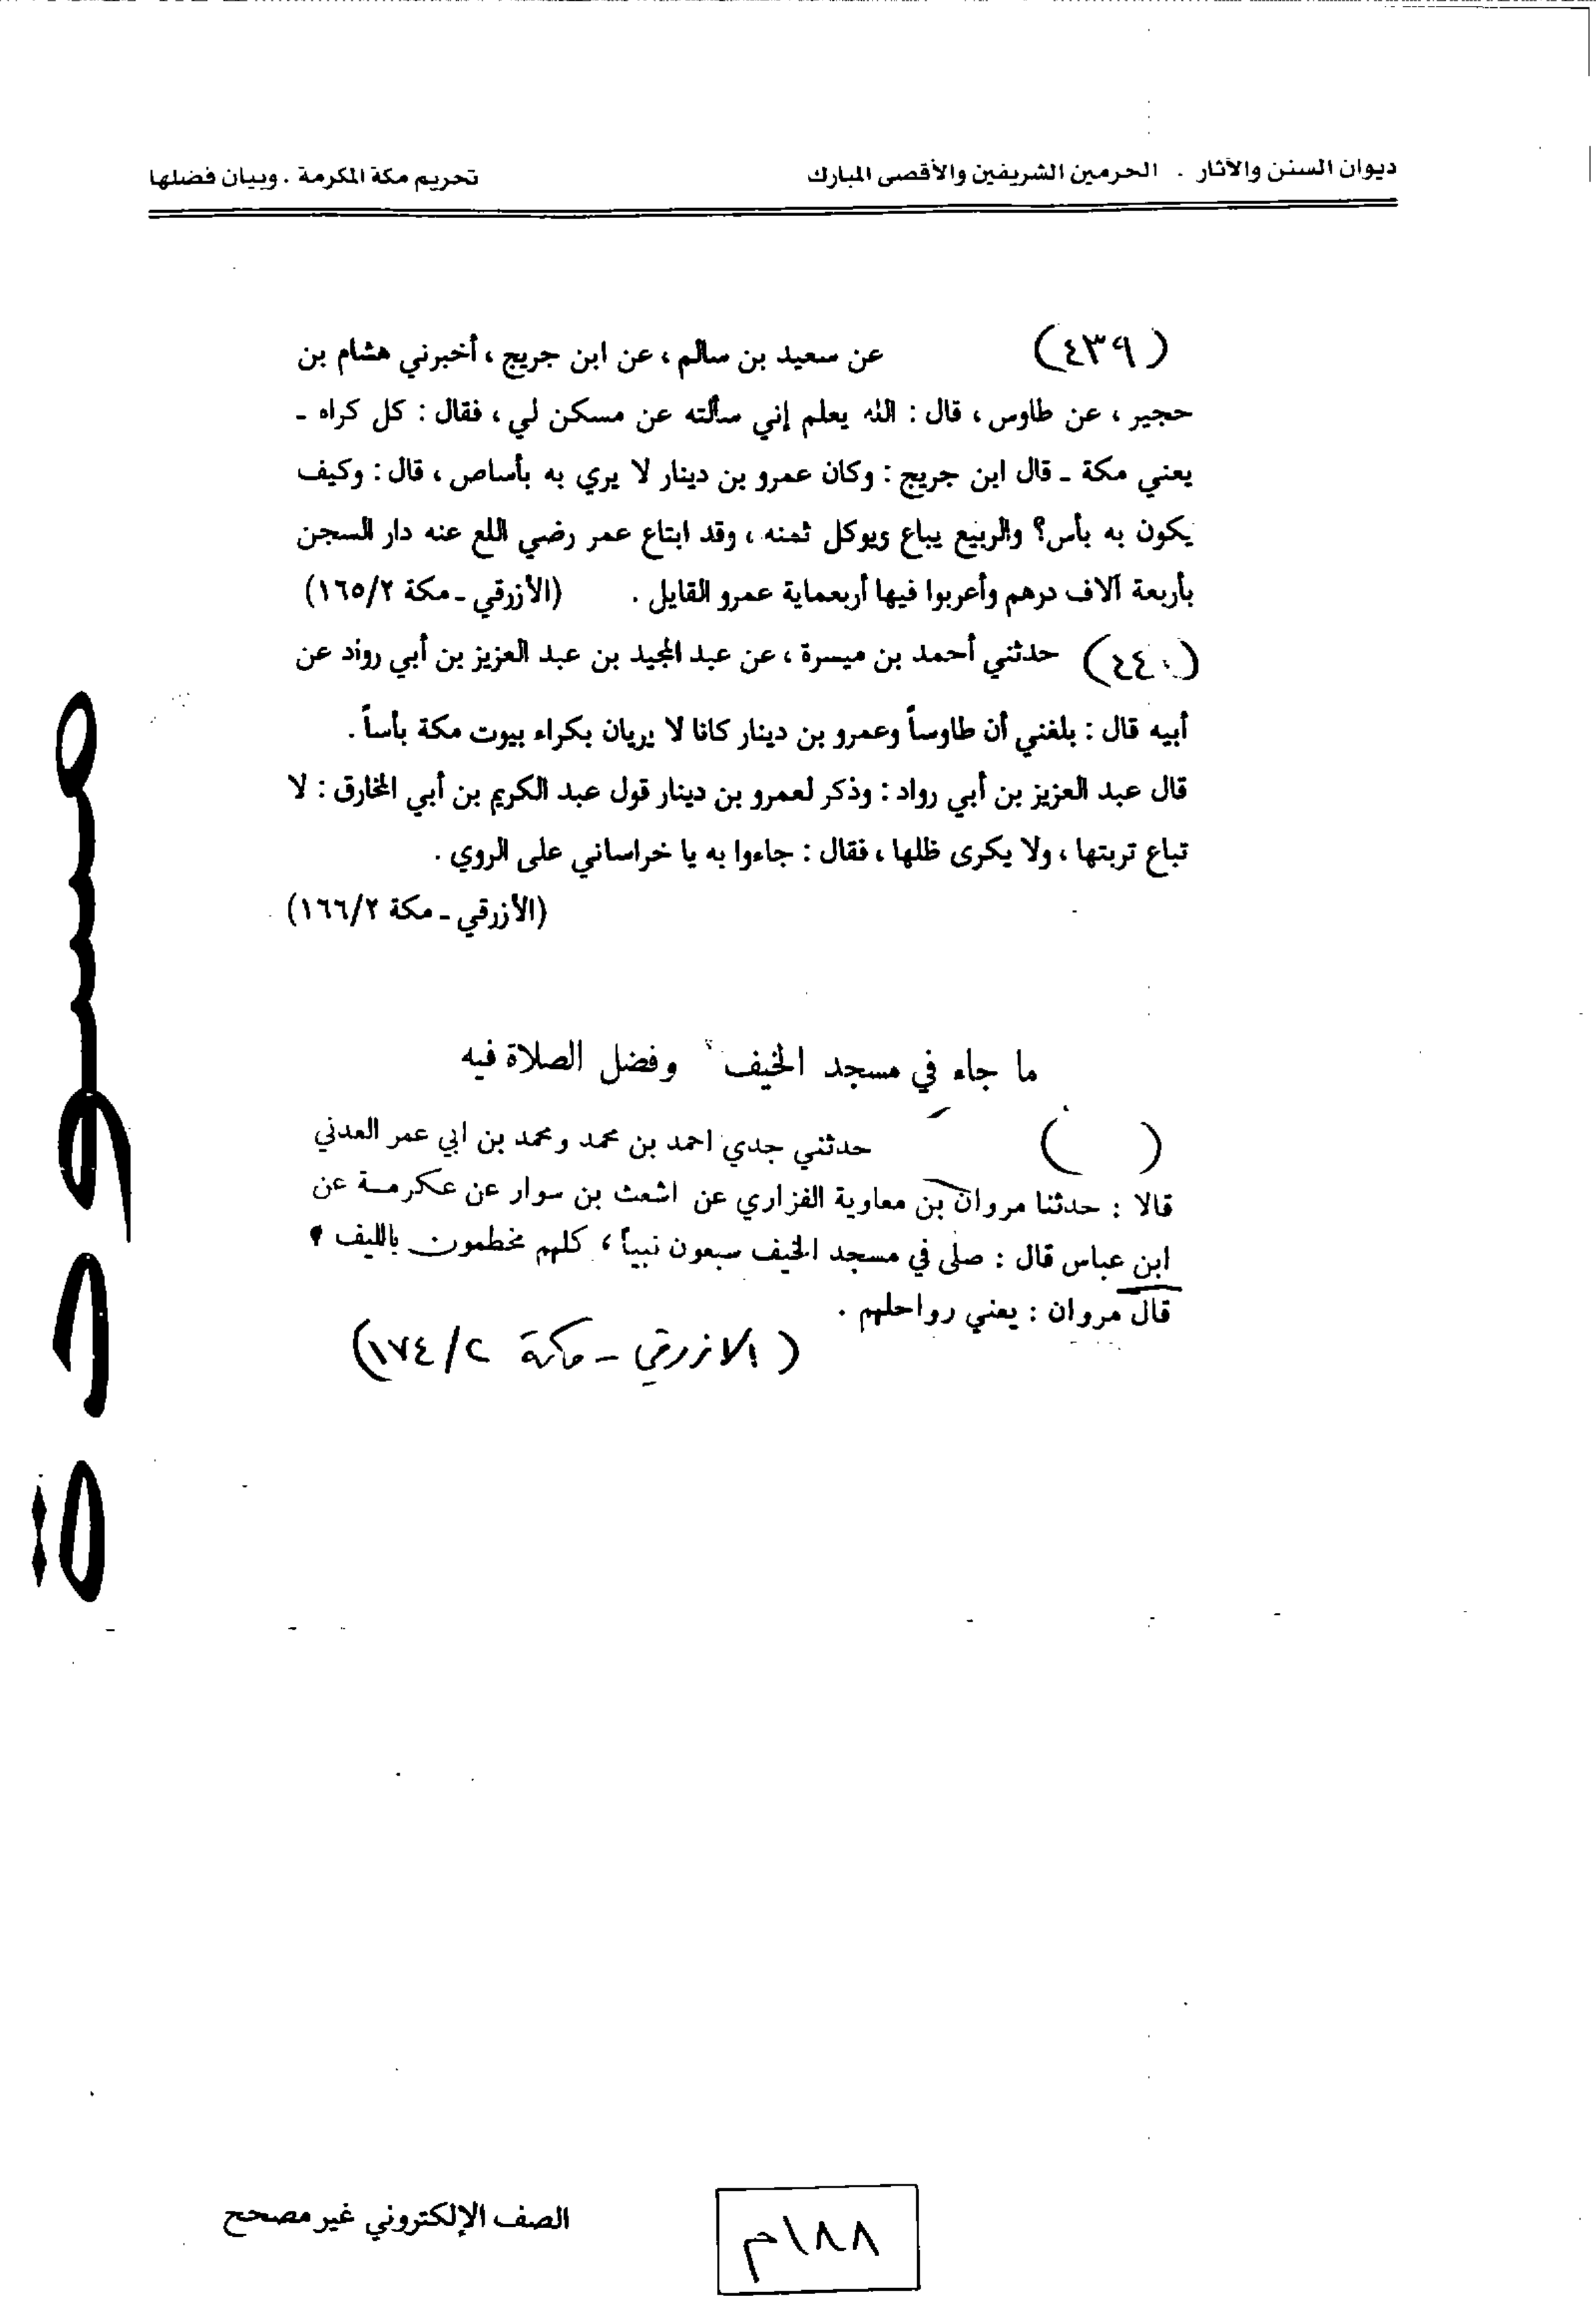 ديوان السنن والآثار . الحرمين الشريفين والأقصى المبارك
تحريم مكة المكرمة . وبيان فضلها
(٤٣٩) عن سعيد بن سالم ، عن ابن جريج ، أخبرني هشام بن
حجير ، عن طاوس ، قال : الله يعلم إني سألته عن مسكن لي ، فقال : كل كراه ـ
يعني مكة ـ قال ابن جريج : وكان عمرو بن دينار لا يري به بأساص ، قال : وكيف
يكون به بأس؟ والربيع يباع ويوكل ثمنه ، وقد ابتاع عمر رضي اللع عنه دار السجن
بأربعة آلاف درهم وأعربوا فيها أربعماية عمرو القايل . (الأزرقي ـ مكة ١٦٥/٢)
(٤٤٠) حدثني أحمد بن ميسرة ، عن عبد المجيد بن عبد العزيز بن أبي رواد عن
أبيه قال : بلغني أن طاوساً وعمرو بن دينار كانا لا يريان بكراء بيوت مكة بأساً .
قال عبد العزيز بن أبي رواد : وذكر لعمرو بن دينار قول عبد الكريم بن أبي المخارق : لا
تباع تربتها ، ولا يكرى ظلها ، فقال : جاءوا به يا خراساني على الروي .
(الأزرقي ـ مكة ١٦٦/٢)
ما جاء في مسجد الخيف وفضل الصلاة فيه
( ) حدثني جدي احمد بن محمد ومحمد بن ابي عمر العدني
قالا : حدثنا مروان بن معاوية الفزاري عن اشعث بن سوار عن عكرمة عن
ابن عباس قال : صلى في مسجد الخيف سبعون نبياً ، كلهم مخطمون بالليف ،
قال مروان : يعني رواحلهم .
(الازرقي – مكة ١٧٤/٢)
مسودة
١٨٨م
الصف الإلكتروني غير مصحح